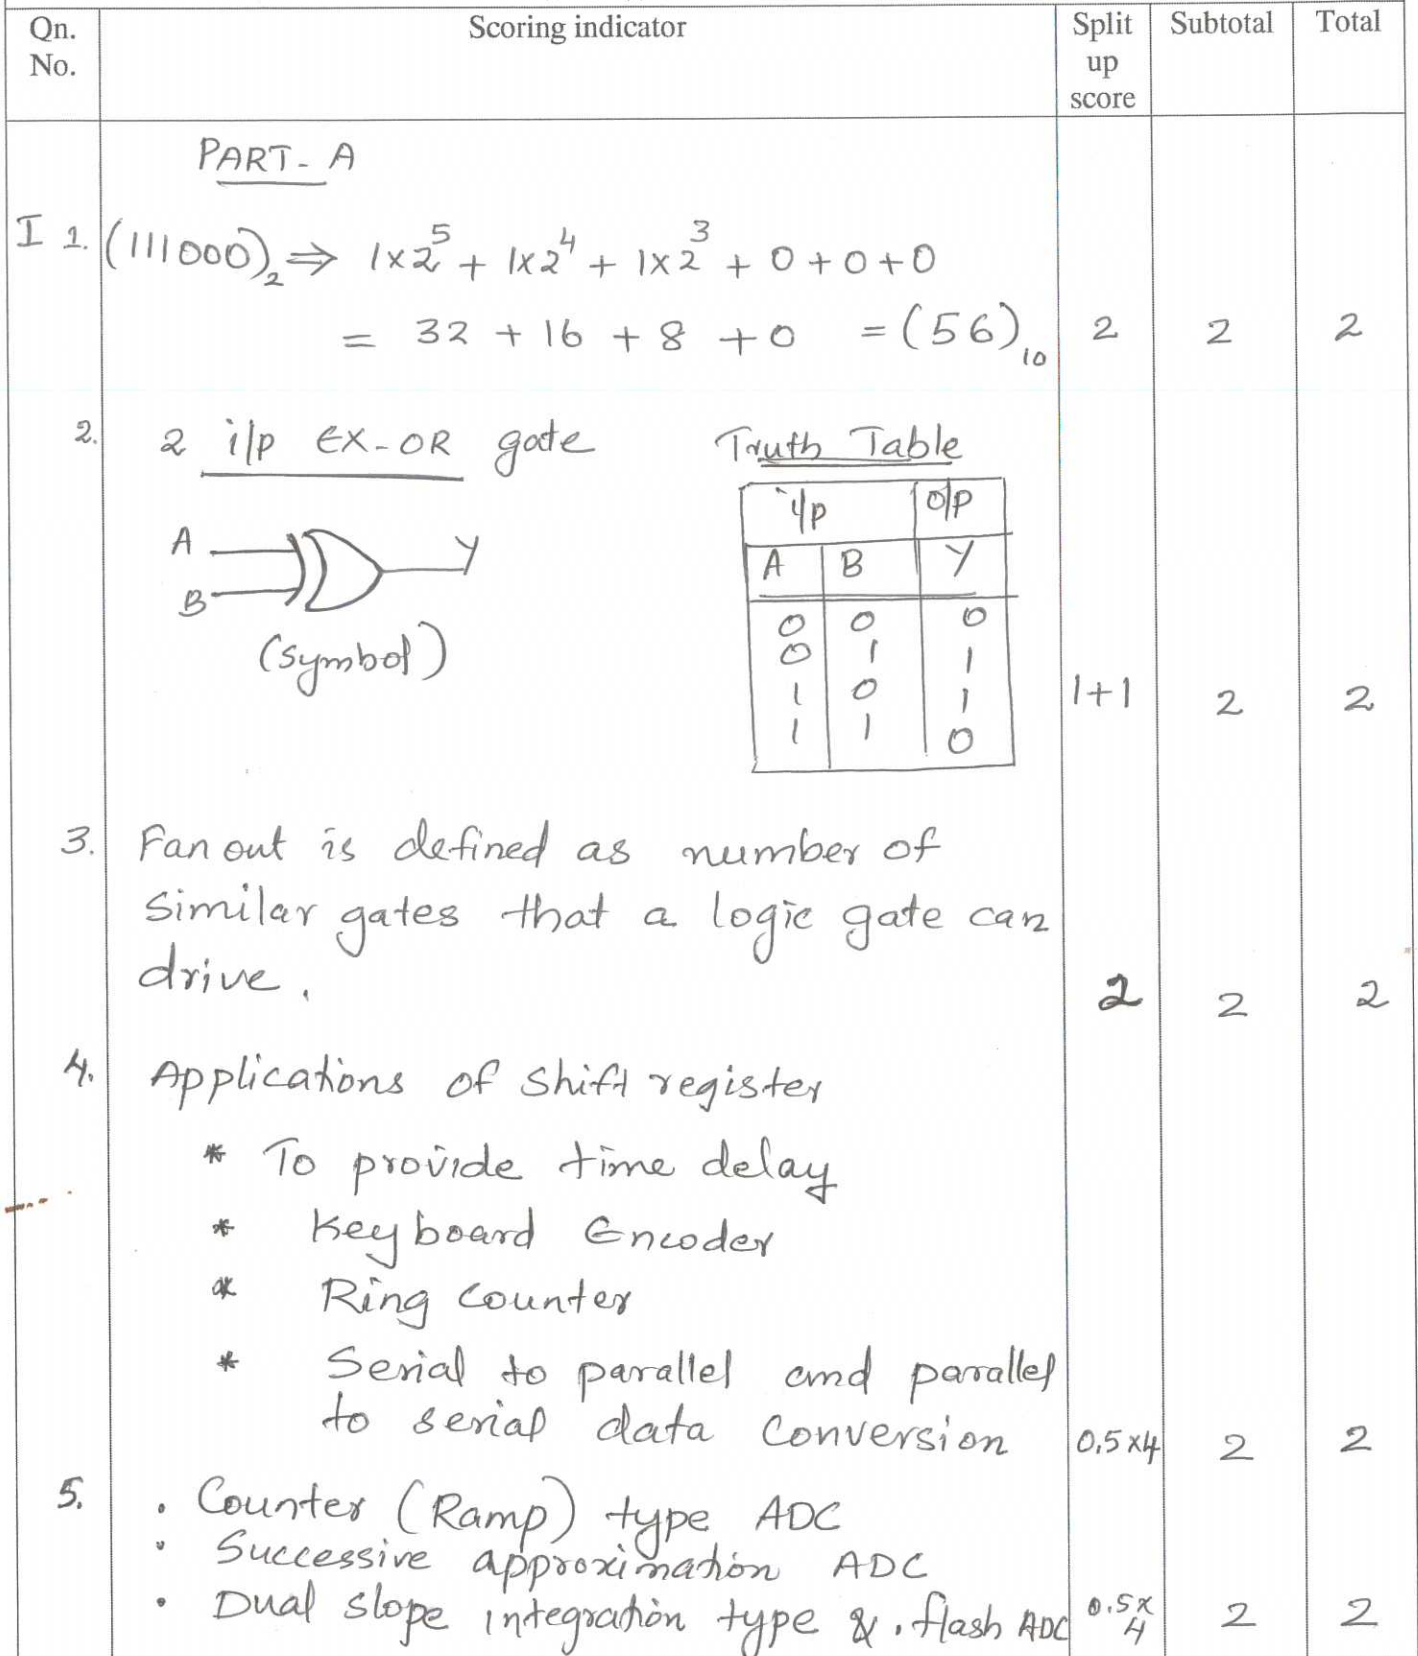 Qn. No. Scoring indicator Split up score Subtotal Total
PART-A
I 1. (111000)₂ ⇒ 1×2⁵ + 1×2⁴ + 1×2³ + 0+0+0
= 32 + 16 + 8 + 0 = (56)₁₀ 2 2 2
2. 2 i/p EX-OR gate Truth Table
i/p o/p
A B Y
0 0 0
0 1 1
1 0 1
1 1 0
A Y
B
(symbol)
1+1 2 2
3. Fan out is defined as number of
similar gates that a logic gate can
drive. 2 2 2
4. Applications of shift register
* To provide time delay
* Keyboard Encoder
* Ring counter
* Serial to parallel and parallel
to serial data conversion 0.5×4 2 2
5. . Counter (Ramp) type ADC
. Successive approximation ADC
. Dual slope integration type & . flash ADC 0.5×4 2 2